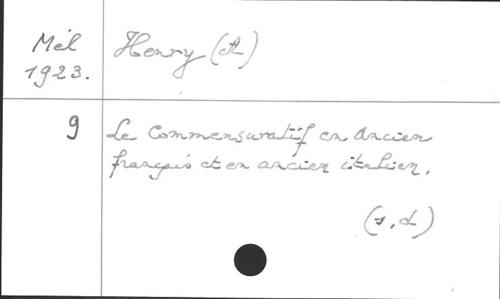 Mél
1923.
Henry (A)
9
Le Commensuratif en Ancien
français et en ancien italien.
(s.d)